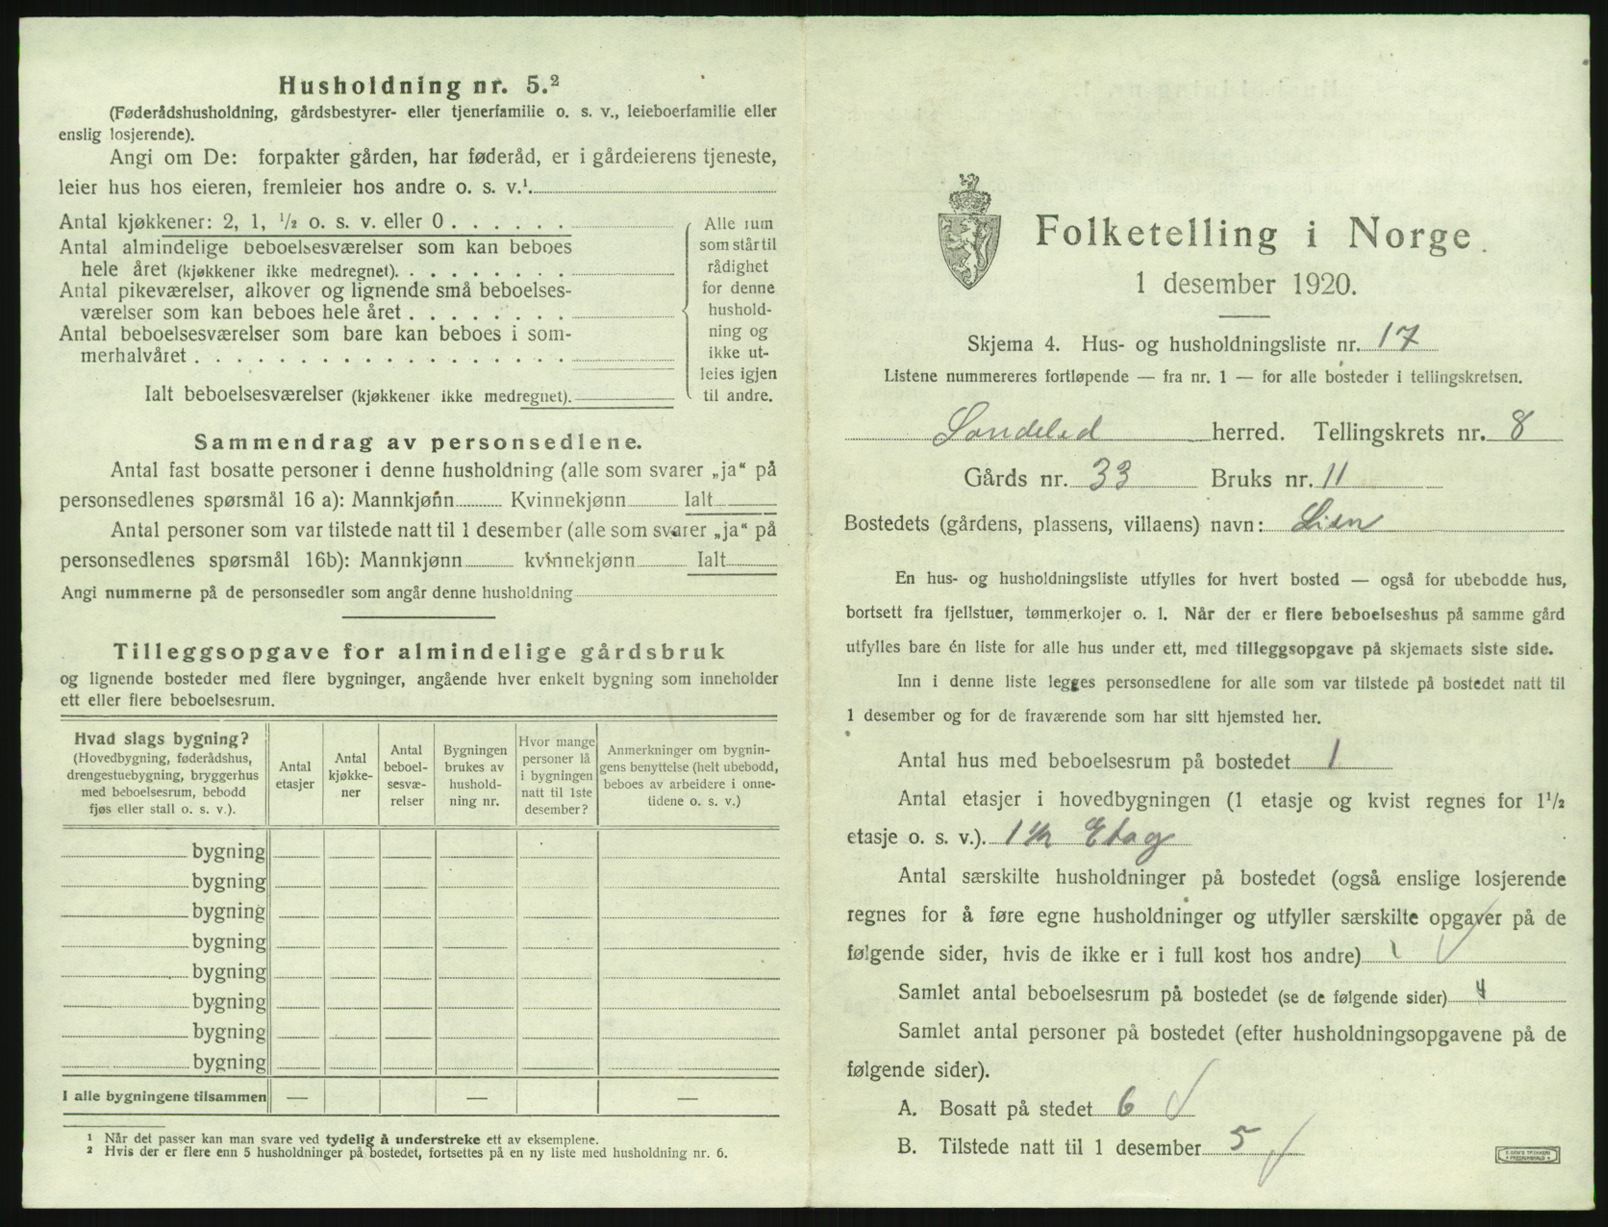 Husholdning nr. 5.²
(Føderådshusholdning, gårdsbestyrer- eller tjenerfamilie o. s. v., leieboerfamilie eller
enslig losjerende).
Angi om De: forpakter gården, har føderåd, er i gårdeierens tjeneste,
leier hus hos eieren, fremleier hos andre o. s. v.¹.
Antal kjøkkener: 2, 1, ½ o. s. v. eller 0 . . . . . .
Antal almindelige beboelsesværelser som kan beboes
hele året (kjøkkener ikke medregnet). . . . . . . . .
Antal pikeværelser, alkover og lignende små beboelses-
værelser som kan beboes hele året . . . . . . . .
Antal beboelsesværelser som bare kan beboes i som-
merhalvåret . . . . . . . . . . . . . . . . . .
Ialt beboelsesværelser (kjøkkener ikke medregnet).
Alle rum
som står til
rådighet
for denne
hushold-
ning og
ikke ut-
leies igjen
til andre.
Sammendrag av personsedlene.
Antal fast bosatte personer i denne husholdning (alle som svarer „ja“ på
personsedlenes spørsmål 16 a): Mannkjønn Kvinnekjønn Ialt
Antal personer som var tilstede natt til 1 desember (alle som svarer „ja“ på
personsedlenes spørsmål 16b): Mannkjønn kvinnekjønn Ialt
Angi nummerne på de personsedler som angår denne husholdning
Tilleggsopgave for almindelige gårdsbruk
og lignende bosteder med flere bygninger, angående hver enkelt bygning som inneholder
ett eller flere beboelsesrum.
Hvad slags bygning?
(Hovedbygning, føderådshus,
drengestuebygning, bryggerhus
med beboelsesrum, bebodd
fjøs eller stall o. s. v.).
Antal
etasjer
Antal
kjøkke-
ner
Antal
beboel-
sesvæ-
relser
Bygningen
brukes av
hushold-
ning nr.
Hvor mange
personer lå
i bygningen
natt til 1ste
desember?
Anmerkninger om bygnin-
gens benyttelse (helt ubebodd,
beboes av arbeidere i onne-
tidene o. s. v.)
bygning
bygning
bygning
bygning
bygning
bygning
bygning
bygning
I alle bygningene tilsammen — — —
¹ Når det passer kan man svare ved tydelig å understreke ett av eksemplene.
² Hvis der er flere enn 5 husholdninger på bostedet, fortsettes på en ny liste med husholdning nr. 6.
Folketelling i Norge
1 desember 1920.
Skjema 4. Hus- og husholdningsliste nr. 17
Listene nummereres fortløpende — fra nr. 1 — for alle bosteder i tellingskretsen.
Søndeled herred. Tellingskrets nr. 8
Gårds nr. 33 Bruks nr. 11
Bostedets (gårdens, plassens, villaens) navn: Lien
En hus- og husholdningsliste utfylles for hvert bosted — også for ubebodde hus,
bortsett fra fjellstuer, tømmerkojer o. l. Når der er flere beboelseshus på samme gård
utfylles bare én liste for alle hus under ett, med tilleggsopgave på skjemaets siste side.
Inn i denne liste legges personsedlene for alle som var tilstede på bostedet natt til
1 desember og for de fraværende som har sitt hjemsted her.
Antal hus med beboelsesrum på bostedet 1
Antal etasjer i hovedbygningen (1 etasje og kvist regnes for 1½
etasje o. s. v.). 1½ Etag
Antal særskilte husholdninger på bostedet (også enslige losjerende
regnes for å føre egne husholdninger og utfyller særskilte opgaver på de
følgende sider, hvis de ikke er i full kost hos andre) 1 ✓
Samlet antal beboelsesrum på bostedet (se de følgende sider) 4
Samlet antal personer på bostedet (efter husholdningsopgavene på de
følgende sider).
A. Bosatt på stedet 6 ✓
B. Tilstede natt til 1 desember 5 ✓